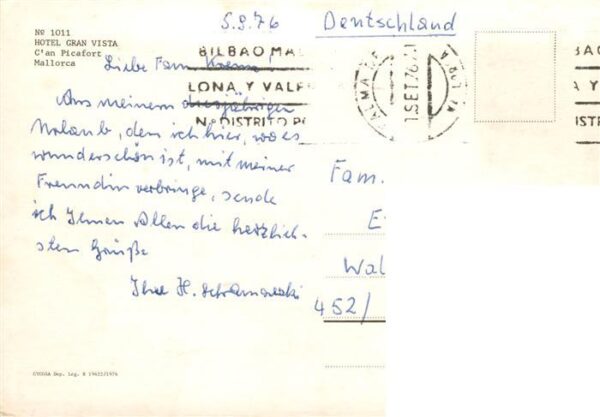 Nº 1011
HOTEL GRAN VISTA
C'an Picafort
Mallorca
5.9.76
Deutschland
BILBAO MA
LONA Y VAL
N. DISTRITO PO
1 SET. 76
BAO
A Y
ISTR
Liebe Fam.
Aus meinem diesjährigen
Urlaub, den ich hier, wo es
wunderschön ist, mit meiner
Freundin verbringe, sende
ich Ihnen Allen die herzlich-
sten Grüße
Ihre H.
Fam.
E
Wal
452/